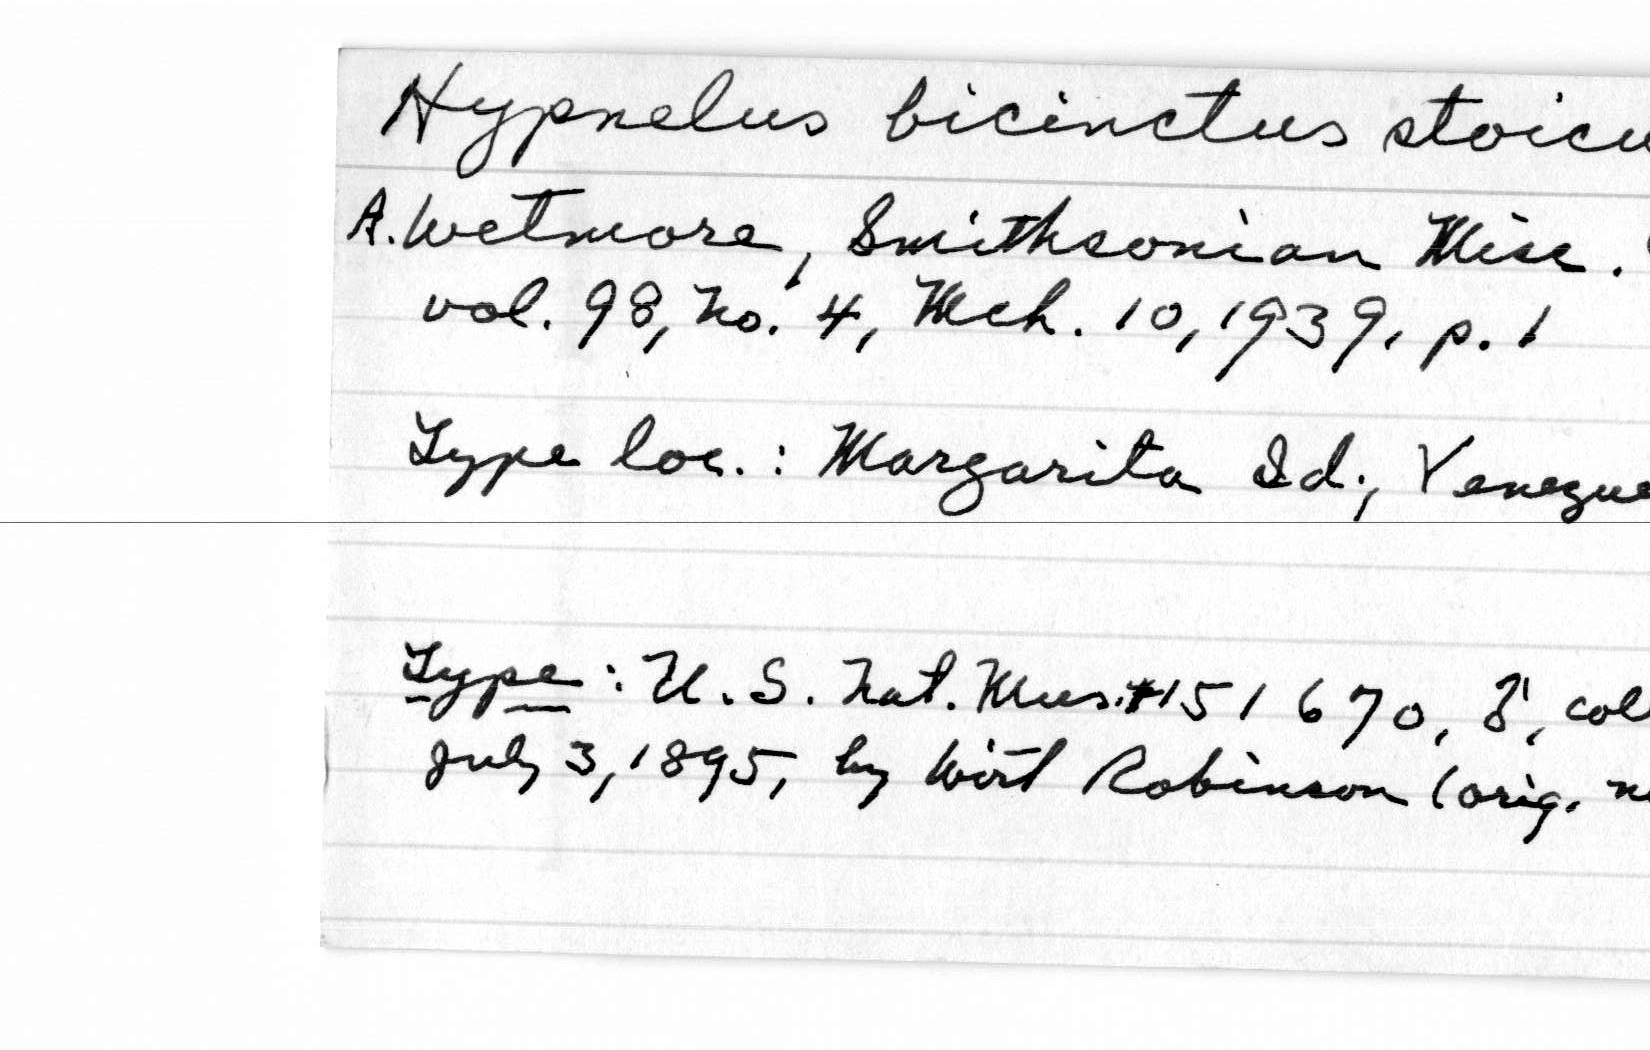 Hypnelus bicinctus stoicu
A. Wetmore, Smithsonian Misc.
vol. 98, No. 4, Mch. 10, 1939, p. 1
Type loc. : Margarita Id., Venezue
Type : U. S. Nat. Mus. #151670, ♂, coll
July 3, 1895, by Wirt Robinson (orig. n